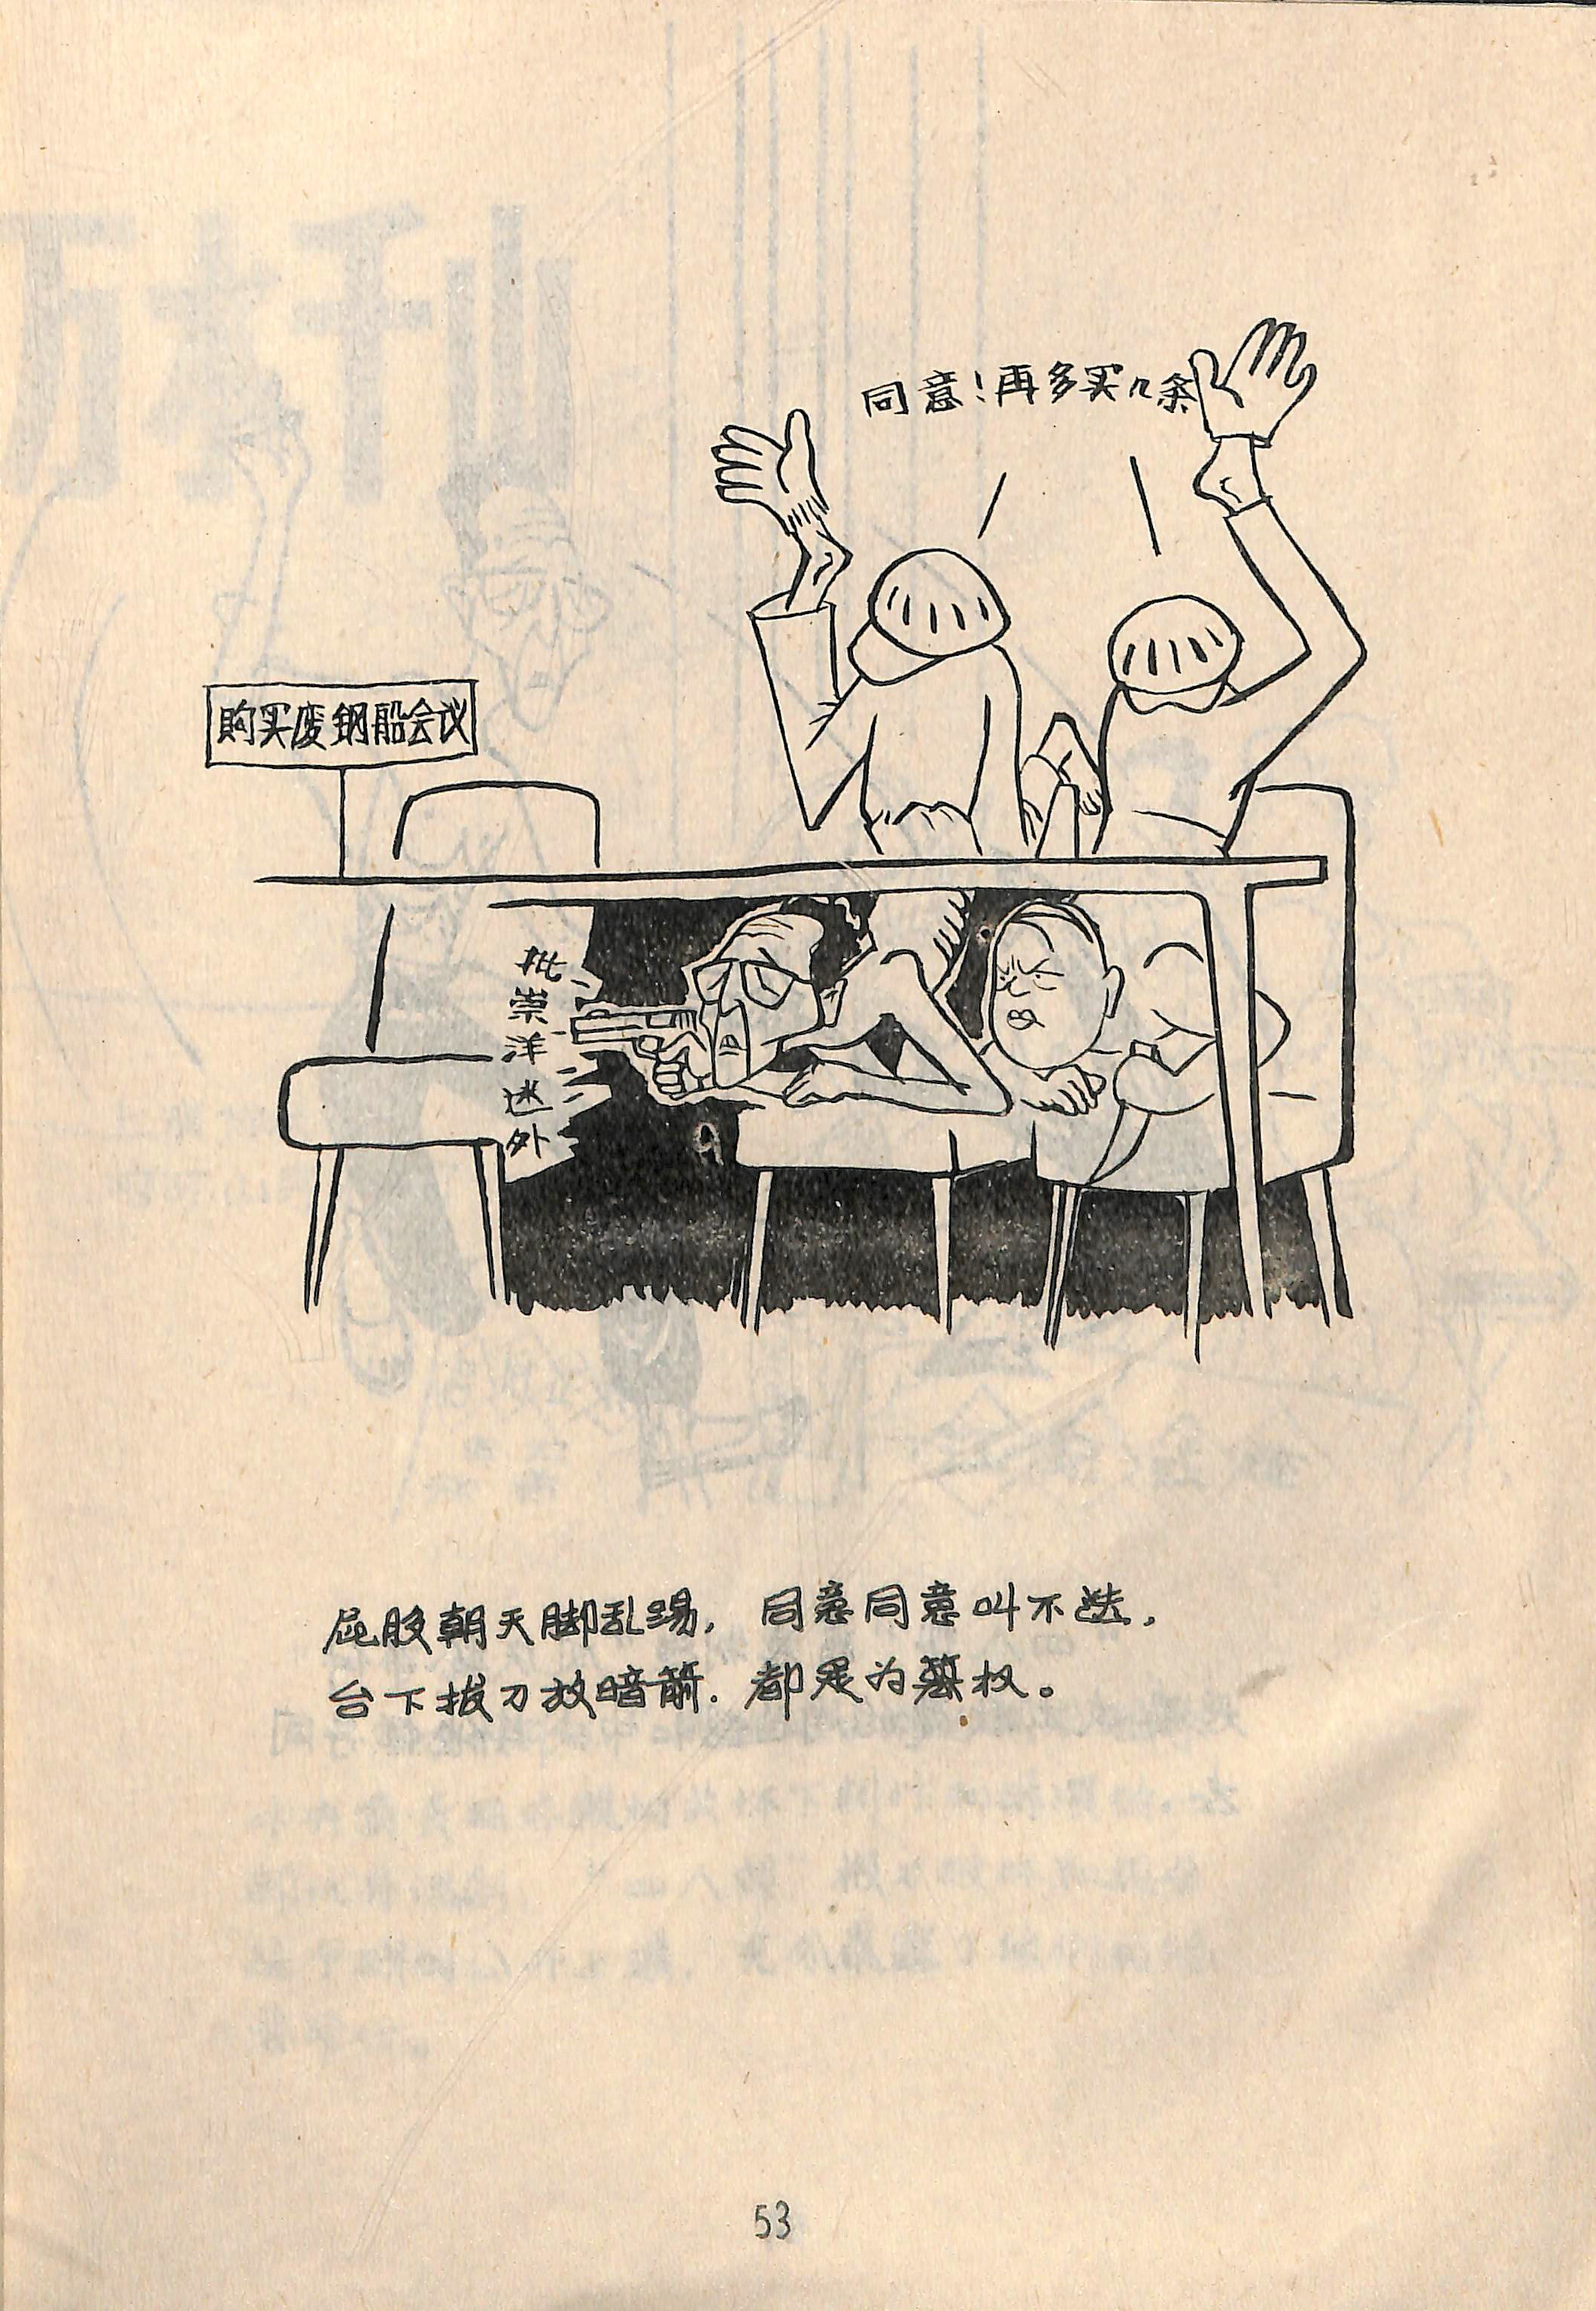 同意!再多买几条
购买废钢船会议
批崇洋迷外
屁股朝天脚乱踢,同意同意叫不迭,
台下拔刀放暗箭.都是为篡权。
53